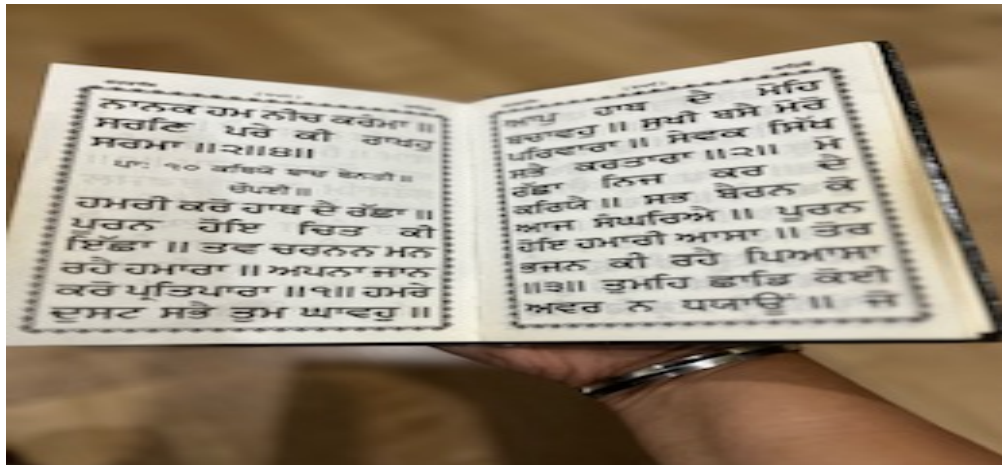 ਨਾਨਕ ਹਮ ਨੀਚ ਕਰੰਮਾ ॥
ਸਰਣਿ ਪਰੇ ਕੀ ਰਾਖਹੁ
ਸਰਮਾ ॥੨॥੪॥
ਪਾ: ੧੦ ਕਬਿਯੋ ਬਾਚ ਬੇਨਤੀ ॥
ਚੌਪਈ ॥
ਹਮਰੀ ਕਰੋ ਹਾਥ ਦੈ ਰੱਛਾ ॥
ਪੂਰਨ ਹੋਇ ਚਿਤ ਕੀ
ਇੱਛਾ ॥ ਤਵ ਚਰਨਨ ਮਨ
ਰਹੈ ਹਮਾਰਾ ॥ ਅਪਨਾ ਜਾਨ
ਕਰੋ ਪ੍ਰਤਿਪਾਰਾ ॥੧॥ ਹਮਰੇ
ਦੁਸਟ ਸਭੈ ਤੁਮ ਘਾਵਹੁ ॥
ਆਪੁ ਹਾਥ ਦੈ ਮੋਹਿ
ਬਚਾਵਹੁ ॥ ਸੁਖੀ ਬਸੈ ਮੋਰੋ
ਪਰਿਵਾਰਾ ॥ ਸੇਵਕ ਸਿੱਖ
ਸਭੈ ਕਰਤਾਰਾ ॥੨॥ ਮੋ
ਰੱਛਾ ਨਿਜ ਕਰ ਦੈ
ਕਰਿਯੈ ॥ ਸਭ ਬੈਰਨ ਕੋ
ਆਜ ਸੰਘਰਿਐ ॥ ਪੂਰਨ
ਹੋਇ ਹਮਾਰੀ ਆਸਾ ॥ ਤੋਰ
ਭਜਨ ਕੀ ਰਹੈ ਪਿਆਸਾ
॥੩॥ ਤੁਮਹਿ ਛਾਡਿ ਕੋਈ
ਅਵਰ ਨ ਧਯਾਊਂ ॥ ਜੋ